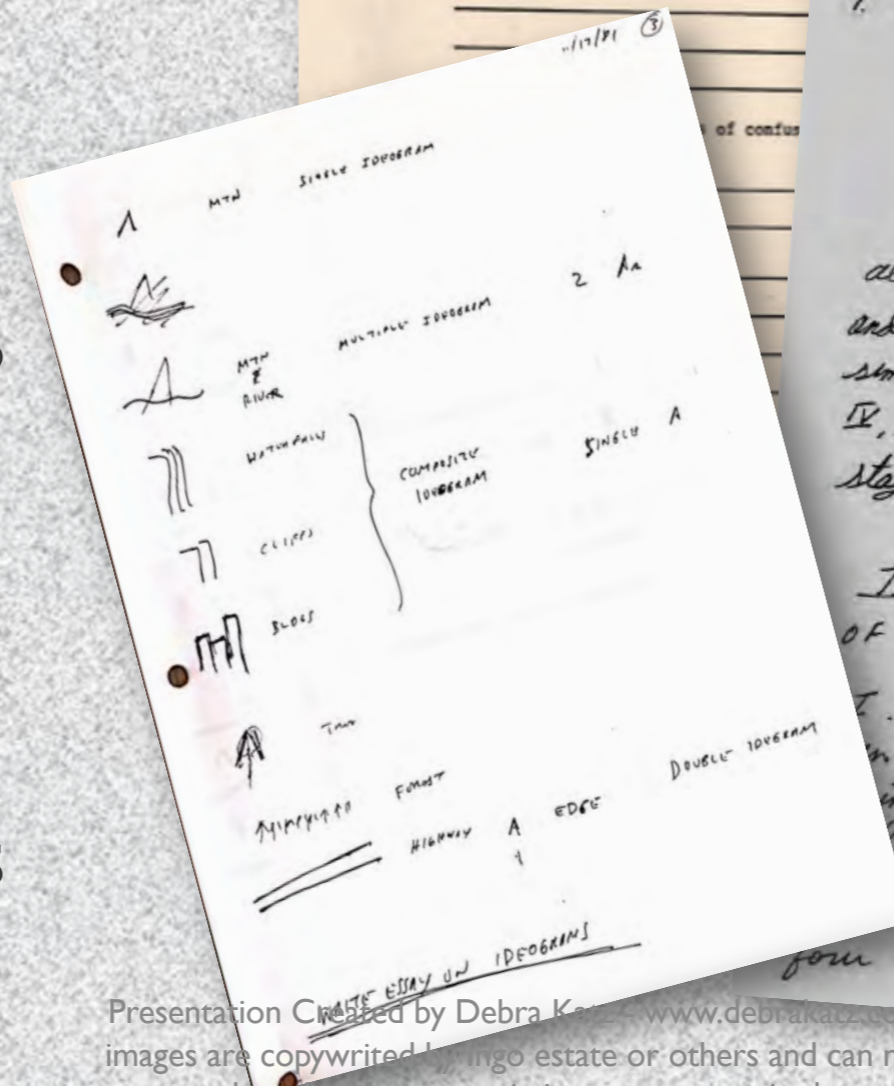 11/17/81 3
MTN SINGLE IDEOGRAM
MTN & RIVER MULTIPLE IDEOGRAM 2 A's
WATERFALLS
CLIFFS
BLDGS
COMPOSITE IDEOGRAM SINGLE A
TREE
FOREST
HIGHWAY A EDGE DOUBLE IDEOGRAM
WRITE ESSAY ON IDEOGRAMS
of confus
and
IV,
OF
I
four
Presentation Created by Debra Katz - www.debrakatz.co
images are copywrited by Ingo estate or others and can